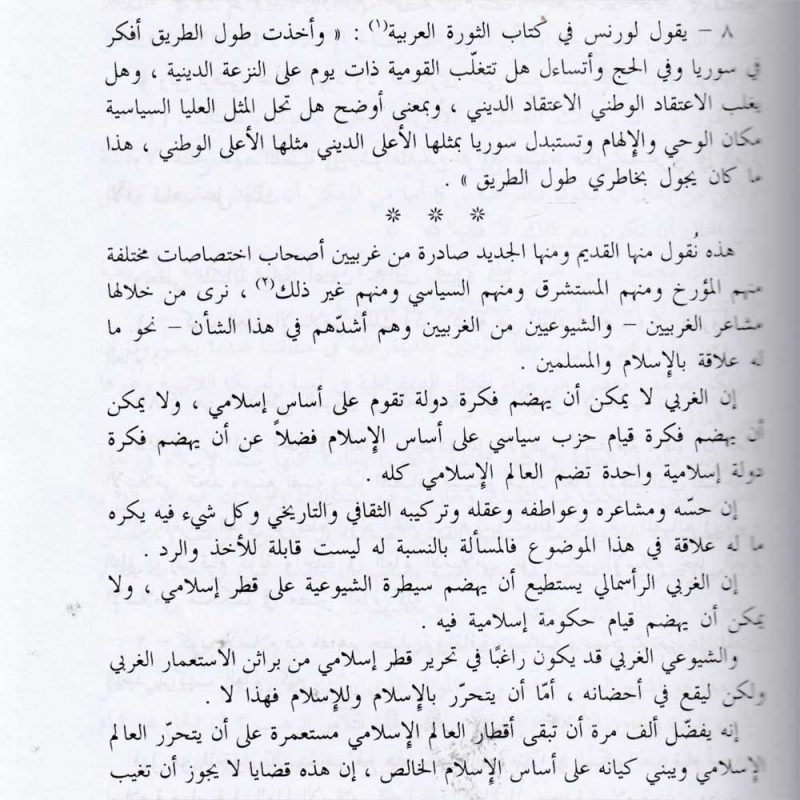 ٨ – يقول لورنس في كتاب الثورة العربية(١) : « وأخذت طول الطريق أفكر
في سوريا وفي الحج وأتساءل هل تتغلّب القومية ذات يوم على النزعة الدينية ، وهل
يغلب الاعتقاد الوطني الاعتقاد الديني ، وبمعنى أوضح هل تحل المثل العليا السياسية
مكان الوحي والإلهام وتستبدل سوريا بمثلها الأعلى الديني مثلها الأعلى الوطني ، هذا
ما كان يجول بخاطري طول الطريق » .
* * *
هذه نُقول منها القديم ومنها الجديد صادرة من غربيين أصحاب اختصاصات مختلفة
منهم المؤرخ ومنهم المستشرق ومنهم السياسي ومنهم غير ذلك(٢) ، نرى من خلالها
مشاعر الغربيين – والشيوعيين من الغربيين وهم أشدّهم في هذا الشأن – نحو ما
له علاقة بالإسلام والمسلمين .
إن الغربي لا يمكن أن يهضم فكرة دولة تقوم على أساس إسلامي ، ولا يمكن
أن يهضم فكرة قيام حزب سياسي على أساس الإسلام فضلاً عن أن يهضم فكرة
دولة إسلامية واحدة تضم العالم الإسلامي كله .
إن حسّه ومشاعره وعواطفه وعقله وتركيبه الثقافي والتاريخي وكل شيء فيه يكره
ما له علاقة في هذا الموضوع فالمسألة بالنسبة له ليست قابلة للأخذ والرد .
إن الغربي الرأسمالي يستطيع أن يهضم سيطرة الشيوعية على قطر إسلامي ، ولا
يمكن أن يهضم قيام حكومة إسلامية فيه .
والشيوعي الغربي قد يكون راغبًا في تحرير قطر إسلامي من براثن الاستعمار الغربي
ولكن ليقع في أحضانه ، أمّا أن يتحرّر بالإسلام وللإسلام فهذا لا .
إنه يفضّل ألف مرة أن تبقى أقطار العالم الإسلامي مستعمرة على أن يتحرر العالم
الإسلامي ويبني كيانه على أساس الإسلام الخالص ، إن هذه قضايا لا يجوز أن تغيب